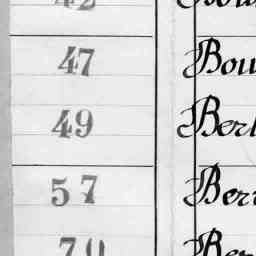 42
47 Bou
49 Berl
57 Ber
70 Ber